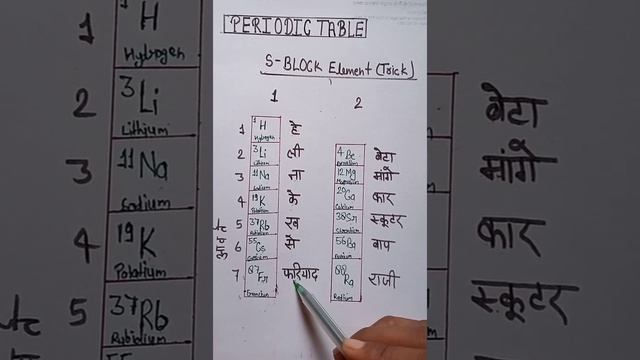 PERIODIC TABLE
S-BLOCK Element (Trick)
1 2
1 1 H Hydrogen हे
2 3 Li Lithium ली 4 Be बेटा
3 11 Na Sodium ना 12 Mg मांगे
4 19 K के 20 Ca Calcium कार
5 37 Rb रब 38 Sr स्कूटर
6 55 Cs से 56 Ba बाप
7 87 Fr फरियाद 88 Ra राजी
आवर्त
1 H
Hydrogen
2 3 Li
Lithium
3 11 Na
Sodium
4 19 K
5 37 Rb
55
बेटा
मांगे
कार
स्कूटर